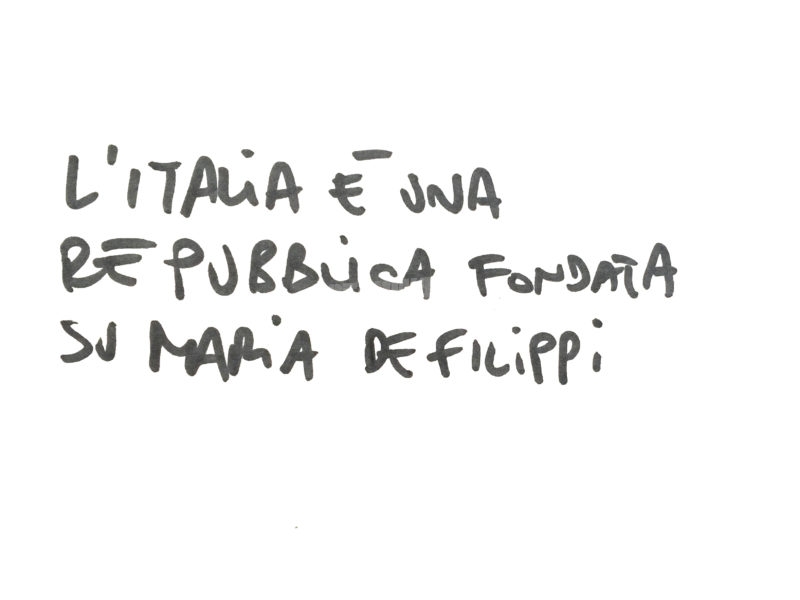 L'ITALiA È UNA
REPUBBLiCA FONDATA
SU MARiA DE FILiPPi